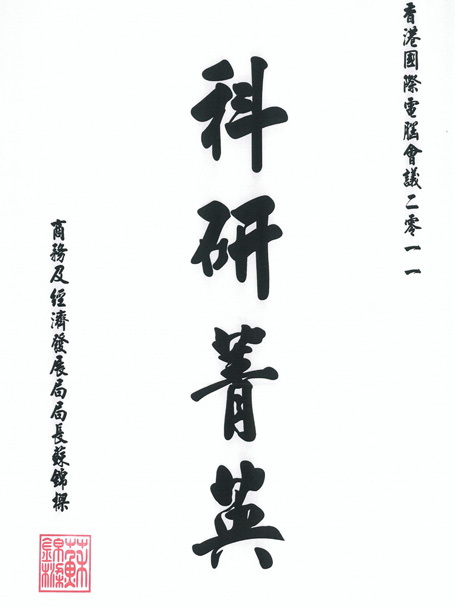 香港國際電腦會議二零一一
科研菁英
商務及經濟發展局局長蘇錦樑
蘇錦樑